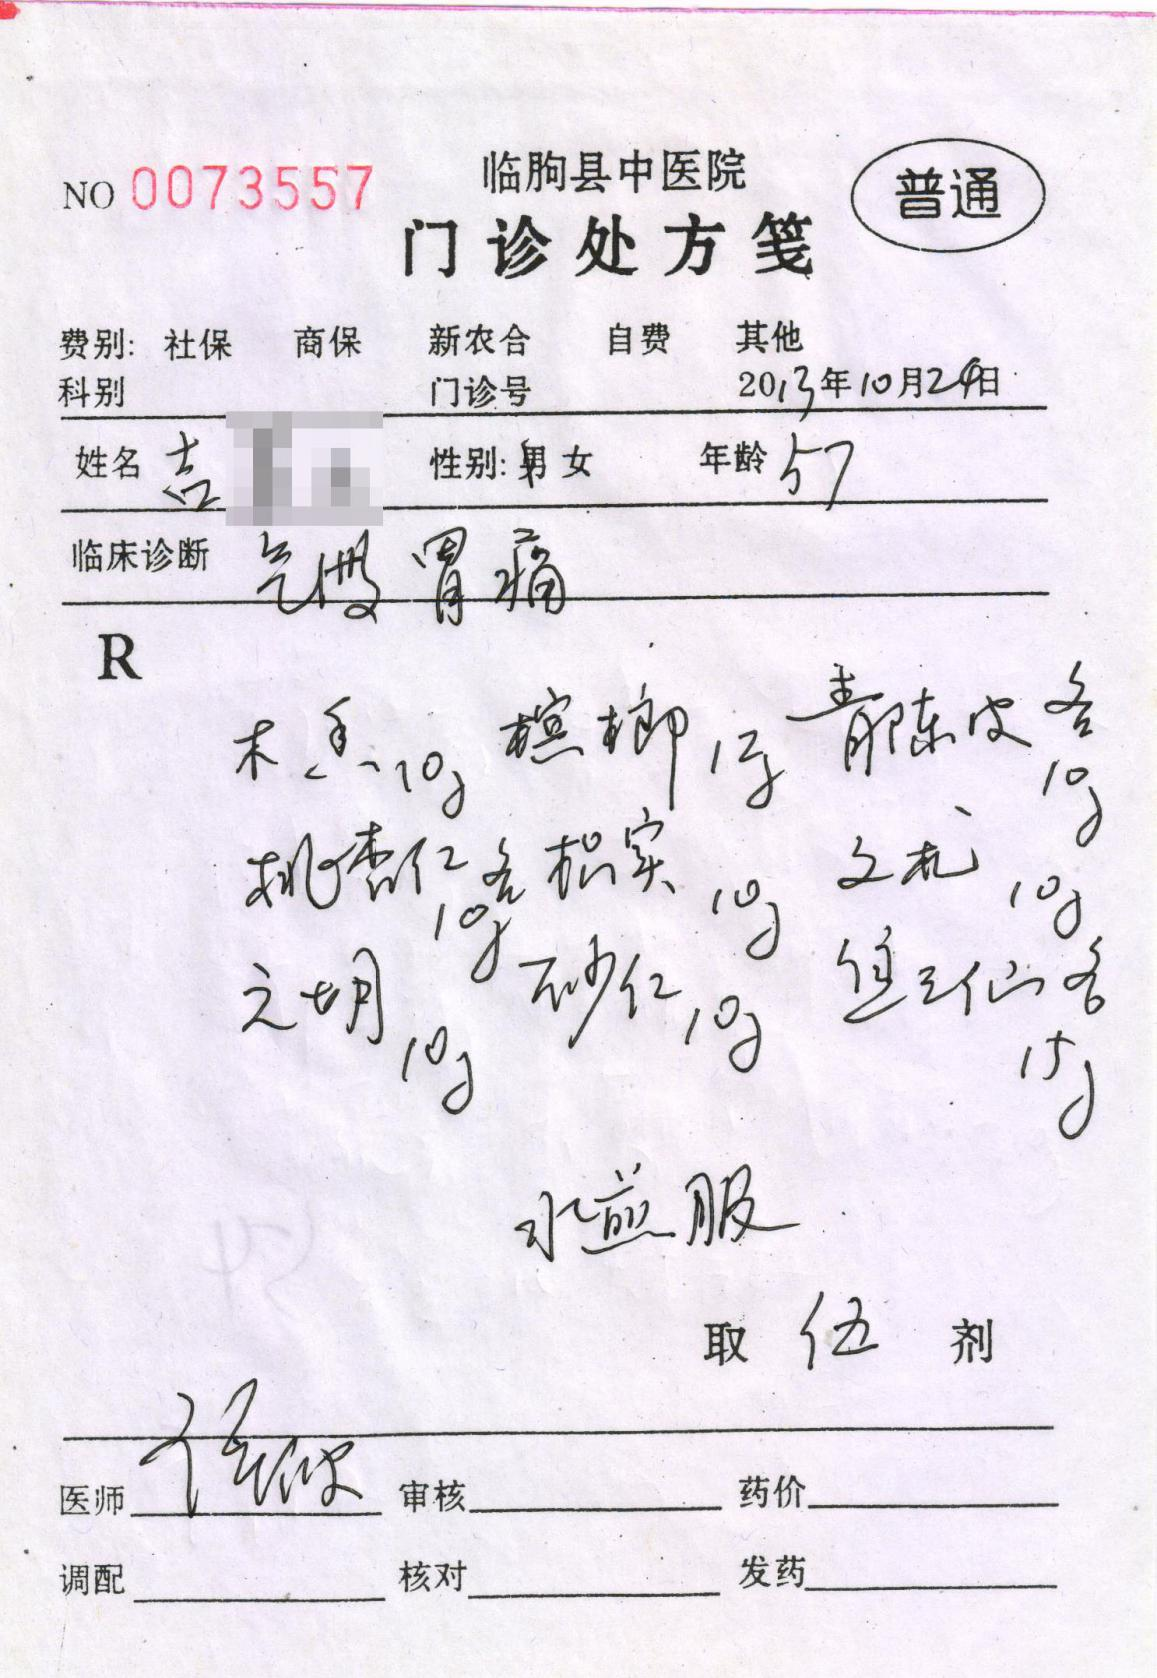 临朐县中医院
NO 0073557
普通
门诊处方笺
费别: 社保 商保 新农合 自费 其他
科别 门诊号 2013年10月24日
姓名 吉 性别: 男 女 年龄 57
临床诊断 气滞 胃痛
R
木香10g 槟榔12g 青陈皮各10g
桃杏仁各10g 枳实10g 文术10g
元胡10g 砂仁10g 焦三仙各15g
水煎服
取 伍 剂
医师 审核 药价
调配 核对 发药